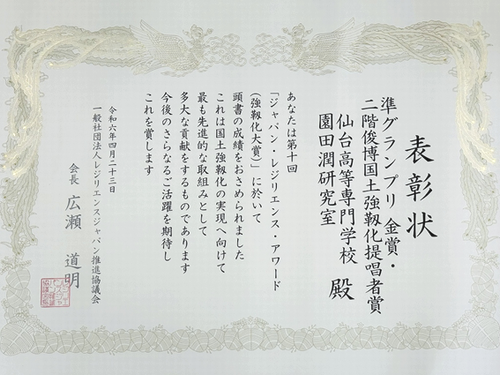 表彰状
準グランプリ 金賞・
二階俊博国土強靱化提唱者賞
仙台高等専門学校
園田潤研究室 殿
あなたは第十回
「ジャパン・レジリエンス・アワード
(強靱化大賞)」に於いて
頭書の成績をおさめられました
これは国土強靱化の実現へ向けて
最も先進的な取組みとして
多大な貢献をするものであります
今後のさらなるご活躍を期待し
これを賞します
令和六年四月二十三日
一般社団法人レジリエンスジャパン推進協議会
会長 広瀬 道明